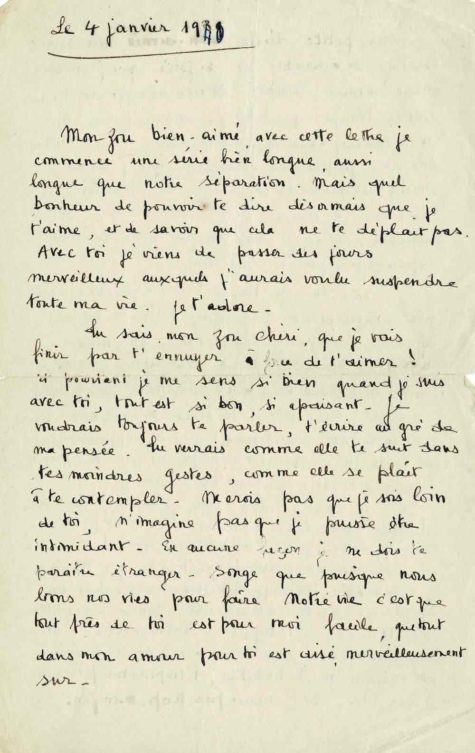 Le 4 janvier 19
Mon Zou bien-aimé, avec cette lettre je
commence une série bien longue, aussi
longue que notre séparation. Mais quel
bonheur de pouvoir te dire désormais que je
t'aime, et de savoir que cela ne te déplait pas.
Avec toi je viens de passer des jours
merveilleux auxquels j'aurais voulu suspendre
toute ma vie. Je t'adore.
Tu sais, mon Zou chéri, que je vais
finir par t'ennuyer à de t'aimer !
pourtant je me sens si bien quand je suis
avec toi, tout est si bon, si apaisant. Je
voudrais toujours te parler, t'écrire au gré de
ma pensée. Tu verrais comme elle te suit dans
tes moindres gestes, comme elle se plaît
à te contempler. Ne crois pas que je sois loin
de toi, n'imagine pas que je puisse être
intimidant. En aucune façon je ne dois te
paraître étranger. Songe que puisque nous
lions nos vies pour faire Notre vie c'est que
tout près de toi est pour moi facile, que tout
dans mon amour pour toi est aisé, merveilleusement
sur.